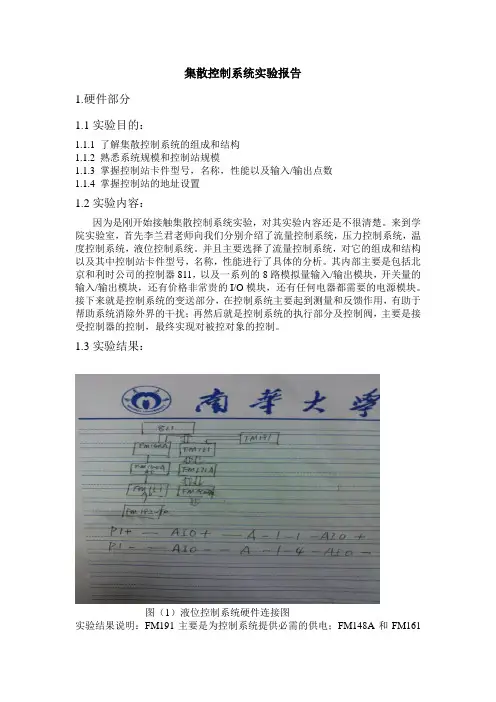 集散控制系统实验报告
1.硬件部分
1.1 实验目的：
1.1.1 了解集散控制系统的组成和结构
1.1.2 熟悉系统规模和控制站规模
1.1.3 掌握控制站卡件型号，名称，性能以及输入/输出点数
1.1.4 掌握控制站的地址设置
1.2 实验内容：
因为是刚开始接触集散控制系统实验，对其实验内容还是不很清楚。来到学
院实验室，首先李兰君老师向我们分别介绍了流量控制系统，压力控制系统，温
度控制系统，液位控制系统。并且主要选择了流量控制系统，对它的组成和结构
以及其中控制站卡件型号，名称，性能进行了具体的分析。其内部主要是包括北
京和利时公司的控制器 811，以及一系列的 8 路模拟量输入/输出模块，开关量的
输入/输出模块，还有价格非常贵的 I/O 模块，还有任何电器都需要的电源模块。
接下来就是控制系统的变送部分，在控制系统主要起到测量和反馈作用，有助于
帮助系统消除外界的干扰；再然后就是控制系统的执行部分及控制阀，主要是接
受控制器的控制，最终实现对被控对象的控制。
1.3 实验结果：
南华大学
811
FM148A FM161 FM191
PI+ — AI0+ — A-1-1-AI0+
PI- — AI0- - A-1-4-AI0-
图（1）液位控制系统硬件连接图
实验结果说明：FM191 主要是为控制系统提供必需的供电；FM148A 和 FM161